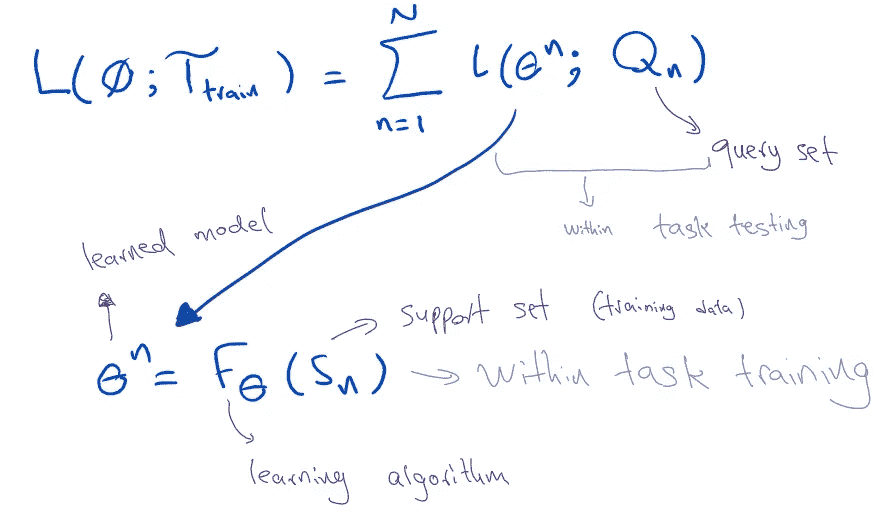 L(ø; T train) = N Σ n=1 l(θⁿ; Qₙ)
query set
within task testing
learned model
support set (training data)
θⁿ = F_θ (Sₙ) → within task training
learning algorithm